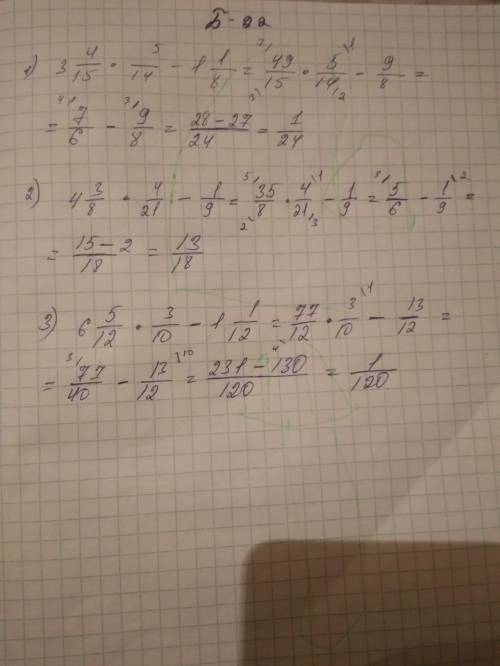 Б-22
1) 3 4/15 · 5/14 − 1 1/8 = 49/15 · 5/14 − 9/8 =
= 7/6 − 9/8 = 28−27/24 = 1/24
2) 4 3/8 · 4/21 − 1/9 = 35/8 · 4/21 − 1/9 = 5/6 − 1/9 =
= 15−2/18 = 13/18
3) 6 5/12 · 3/10 − 1 1/12 = 77/12 · 3/10 − 13/12 =
= 77/40 − 13/12 = 231−130/120 = 1/120